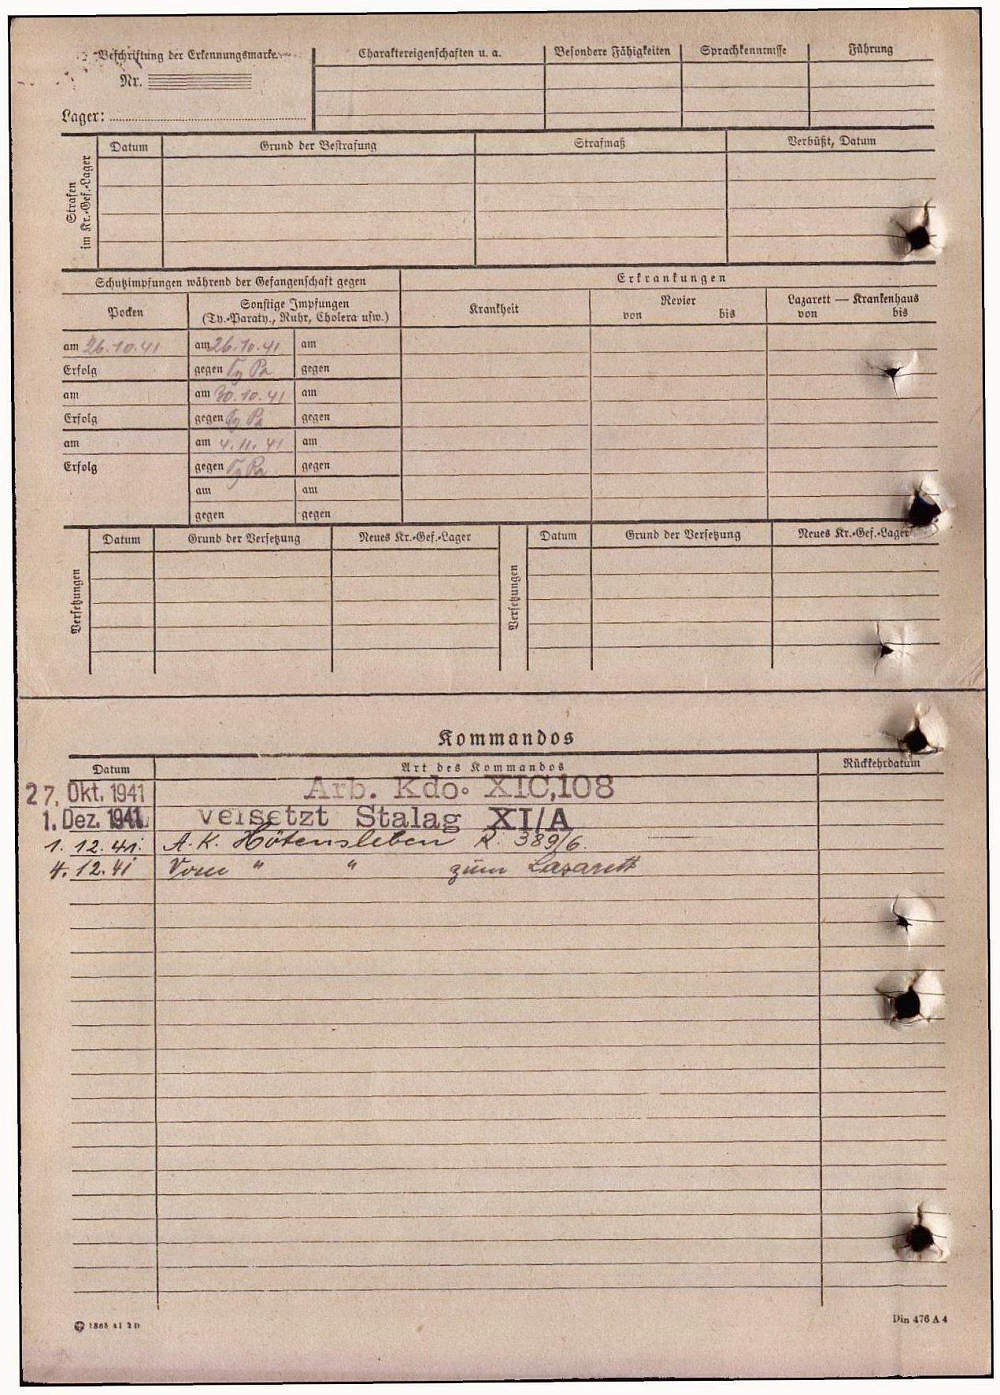 Beschriftung der Erkennungsmarke
Nr.
Lager:
Charaktereigenschaften u. a.
Besondere Fähigkeiten
Sprachkenntnisse
Führung
Strafen im Kr.-Gef.-Lager
Datum
Grund der Bestrafung
Strafmaß
Verbüßt, Datum
Schutzimpfungen während der Gefangenschaft gegen
Erkrankungen
Pocken
Sonstige Impfungen
(Ty.-Paraty., Ruhr, Cholera usw.)
Krankheit
Revier
von bis
Lazarett — Krankenhaus
von bis
am 26.10.41 am 26.10.41 am
Erfolg gegen Ty Pa gegen
am am 30.10.41 am
Erfolg gegen Ty Pa gegen
am am 4.11.41 am
Erfolg gegen Ty Pa gegen
am am
gegen gegen
Versetzungen
Datum Grund der Versetzung Neues Kr.-Gef.-Lager
Versetzungen
Datum Grund der Versetzung Neues Kr.-Gef.-Lager
Kommandos
Datum Art des Kommandos Rückkehrdatum
27. Okt. 1941 Arb. Kdo. XIC,108
1. Dez. 1941 versetzt Stalag XI/A
1. 12. 41. A. K. Hötensleben R. 389/6.
4. 12. 41 Vom " " zum Lazarett
Din 476 A 4